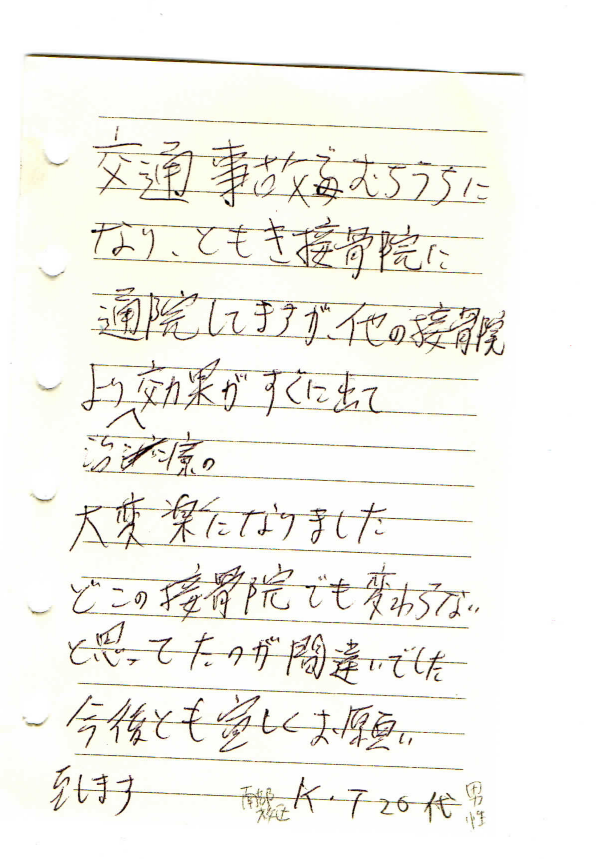 交通事故でむちうちに
なり、ともき接骨院に
通院してますが、他の接骨院
より効果がすぐに出て
治療の
大変楽になりました
どこの接骨院でも変わらない
と思ってたのが間違いでした
今後とも宜しくお願い
致します
K・T 20代 男性